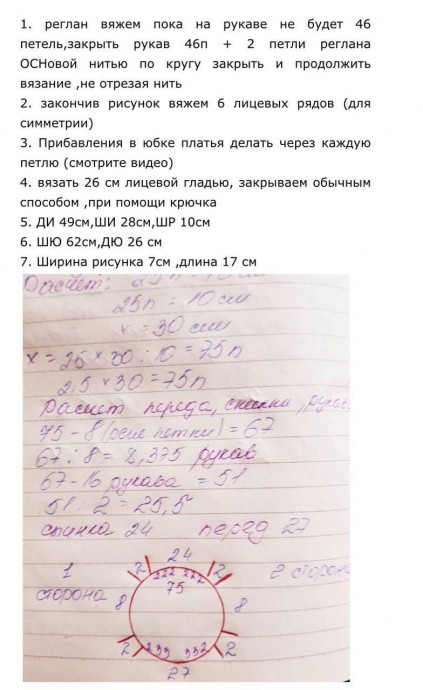 1. реглан вяжем пока на рукаве не будет 46
петель,закрыть рукав 46п + 2 петли реглана
ОСНовой нитью по кругу закрыть и продолжить
вязание ,не отрезая нить
2. закончив рисунок вяжем 6 лицевых рядов (для
симметрии)
3. Прибавления в юбке платья делать через каждую
петлю (смотрите видео)
4. вязать 26 см лицевой гладью, закрываем обычным
способом ,при помощи крючка
5. ДИ 49см,ШИ 28см,ШР 10см
6. ШЮ 62см,ДЮ 26 см
7. Ширина рисунка 7см ,длина 17 см
Расчет: 25п = 10 см
25п = 10 см
х = 30 см
х = 25 × 30 : 10 = 75п
2,5 × 30 = 75п
Расчет переда, спинки, рукава
75 - 8 (регл. петли) = 67
67 : 8 = 8,375 рукав
67 - 16 рукава = 51
51 : 2 = 25,5
спинка 24 перед 27
24
1 2 222 222 2 2 сторона
сторона 75
8 8
2 233 332 2
27